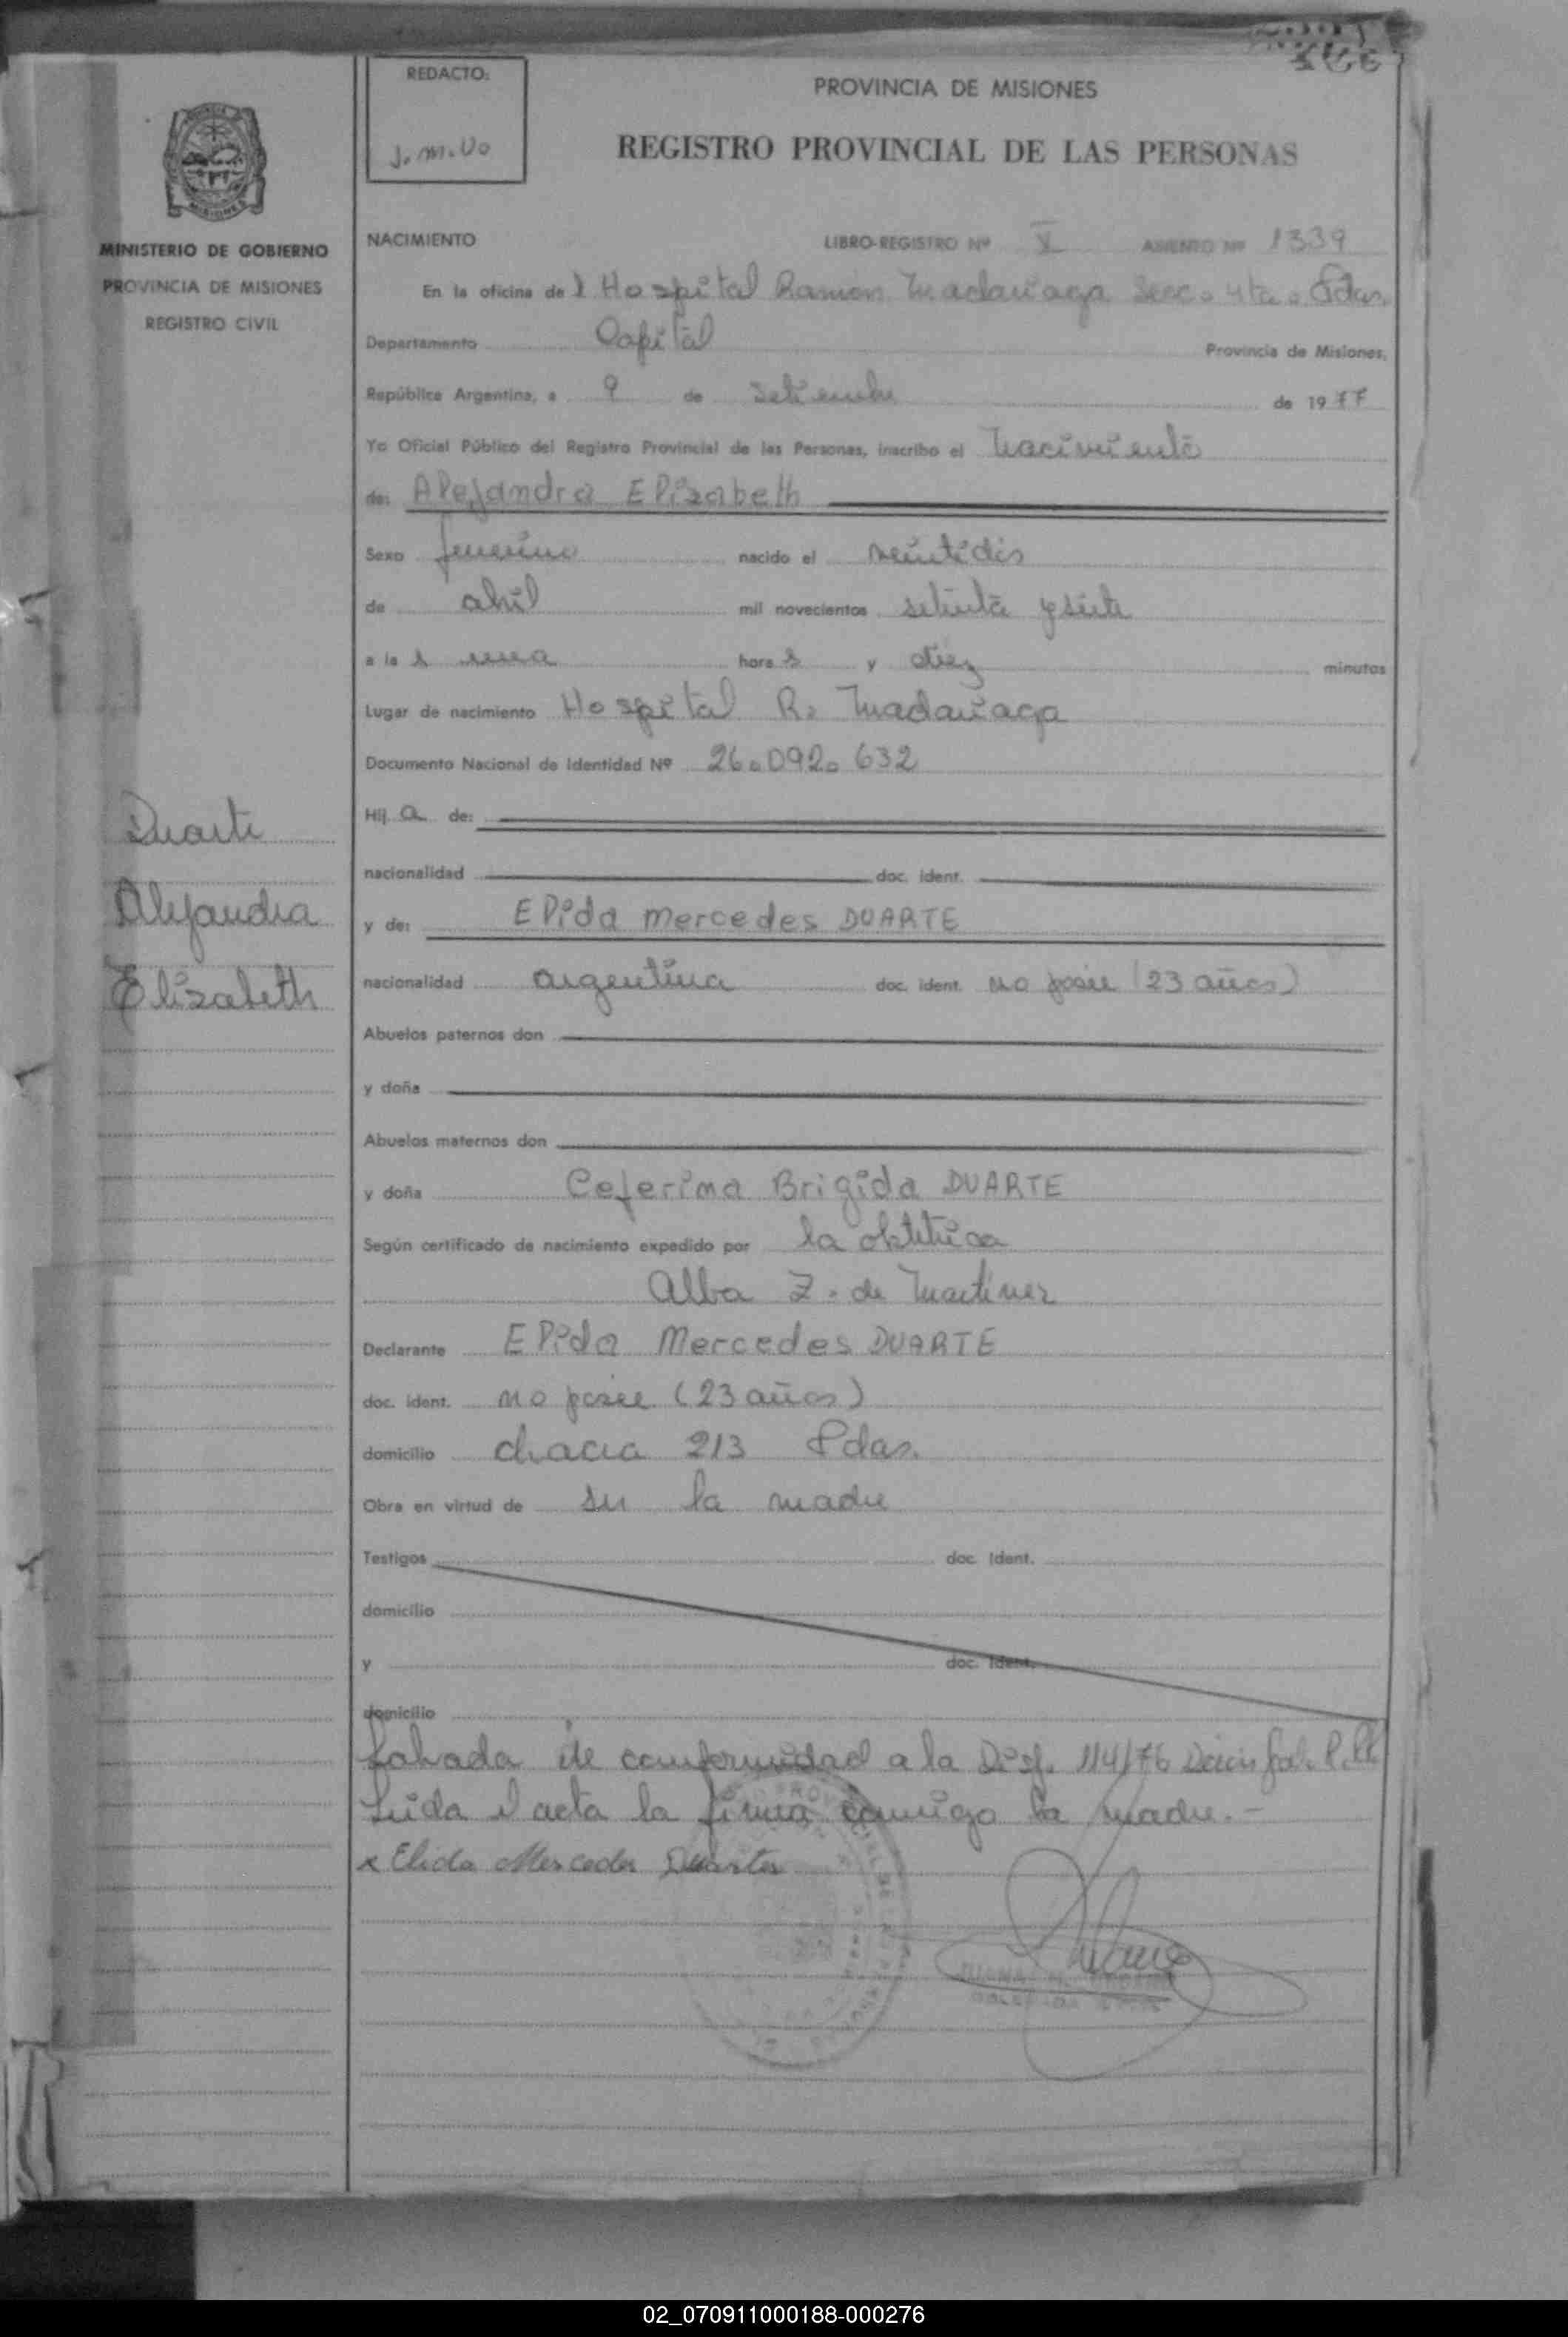 REDACTO:
J. M. Vo
PROVINCIA DE MISIONES
REGISTRO PROVINCIAL DE LAS PERSONAS
MISIONES
MINISTERIO DE GOBIERNO
PROVINCIA DE MISIONES
REGISTRO CIVIL
NACIMIENTO LIBRO-REGISTRO Nº V ASIENTO Nº 1339
En la oficina del Hospital Ramón Madariaga Secc. 4ta. Pdas.
Departamento Capital Provincia de Misiones,
República Argentina, a 9 de setiembre de 1977
Yo Oficial Público del Registro Provincial de las Personas, inscribo el Nacimiento
de: Alejandra Elizabeth
Sexo femenino nacido el veintidós
de abril mil novecientos setenta y siete
a la s una hora s y diez minutos
Lugar de nacimiento Hospital R. Madariaga
Documento Nacional de Identidad Nº 26.092.632
Hij a de:
nacionalidad doc. ident.
y de: Elida Mercedes DUARTE
nacionalidad argentina doc. ident. no posee (23 años)
Abuelos paternos don
y doña
Abuelos maternos don
y doña Ceferina Brigida DUARTE
Según certificado de nacimiento expedido por la obstetrica
Alba Z. de Martinez
Declarante Elida Mercedes DUARTE
doc. ident. no posee (23 años)
domicilio chacra 213 Pdas.
Obra en virtud de ser la madre
Testigos doc. Ident.
domicilio
y doc. Ident.
domicilio
Labrada de conformidad a la Disp. 114/76
Leida el acta la firma conmigo la madre.-
x Elida Mercedes Duarte
Duarte
Alejandra
Elizabeth
02_070911000188-000276